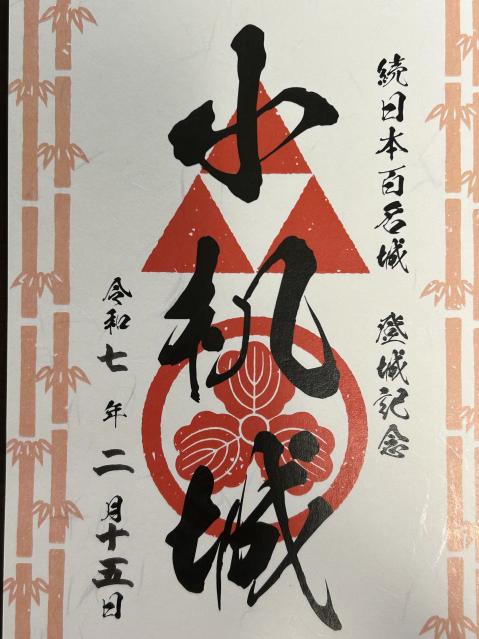 続日本百名城 登城記念
小机城
令和七年二月十五日